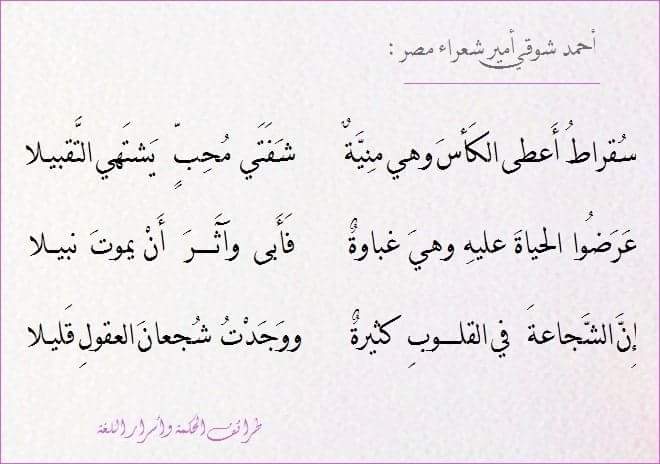 أحمد شوقي أمير شعراء مصر :
سُقراطُ أَعطى الكَأسَ وهي مِنِيَّةٌ شَفَتَي مُحِبٍّ يَشتَهي التَّقبيلا
عَرَضُوا الحياةَ عليهِ وهيَ غباوةٌ فَأَبى وآثَرَ أَنْ يموتَ نبيلا
إنَّ الشَّجاعةَ في القلوبِ كثيرةٌ ووَجَدْتُ شُجعانَ العقولِ قَليلا
طرائف الحكمة وأسرار اللغة